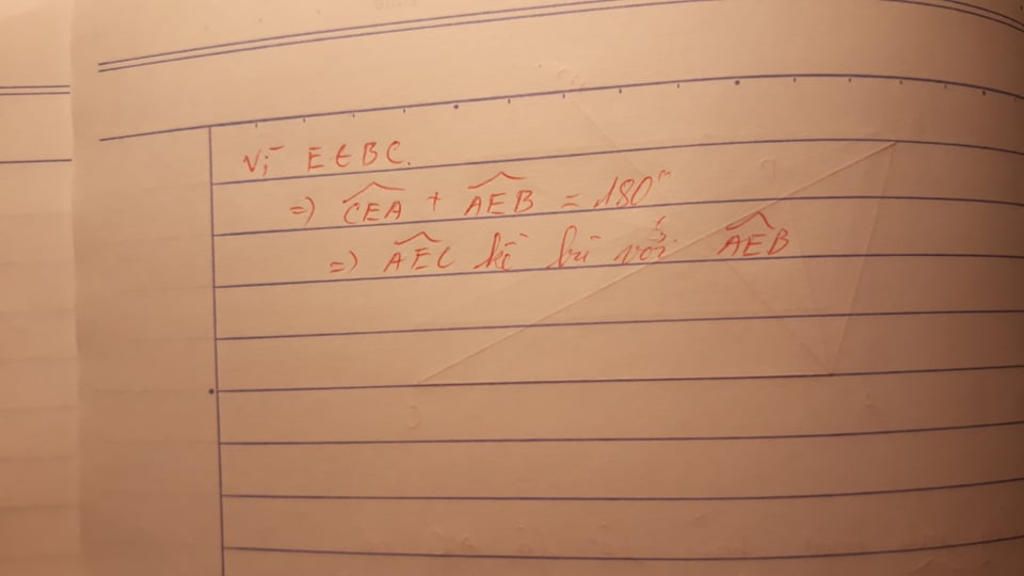 Vì E ∈ BC.
=) \widehat{CEA} + \widehat{AEB} = 180°
=) \widehat{AEC} kề bù với \widehat{AEB}